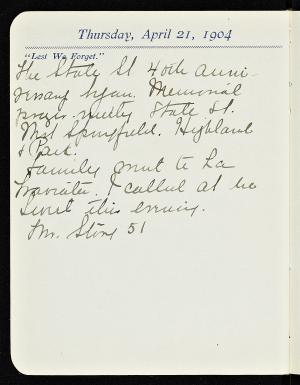 Thursday, April 21, 1904
"Lest We Forget."
The State St 40th Anni-
versary began. Memorial
prayer meeting State St.
1st Springfield. Highland
& Park.
Family went to La
I called at
this evening.
Mr. Stone 51